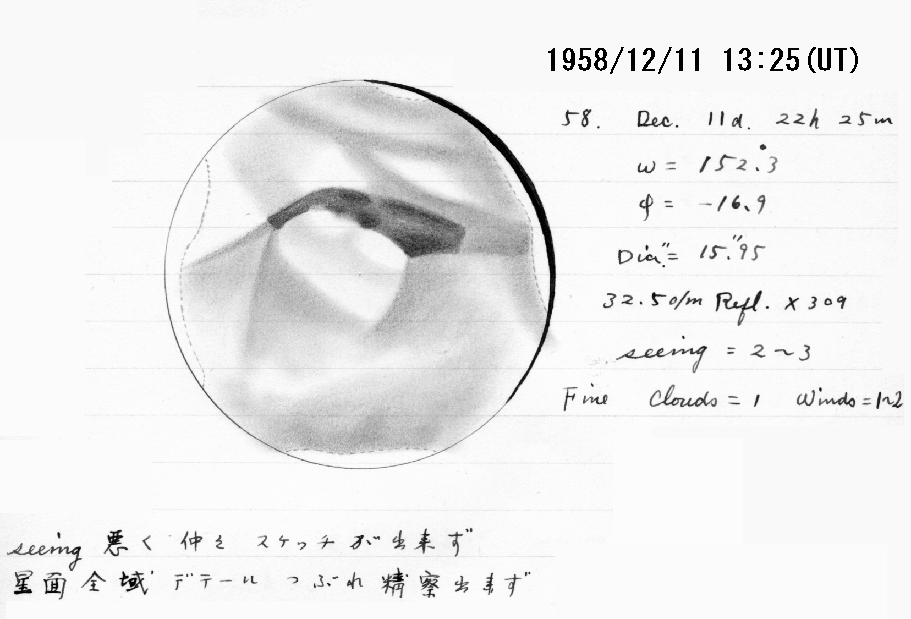 1958/12/11 13:25(UT)
58. Dec. 11d. 22h 25m
ω = 152.°3
φ = -16.9
Dia. = 15."95
32.5 c/m Refl. × 309
seeing = 2~3
Fine Clouds = 1 Winds = 1~2
seeing 悪く仲々スケッチが出来ず
星面全域デテールつぶれ精察出来ず